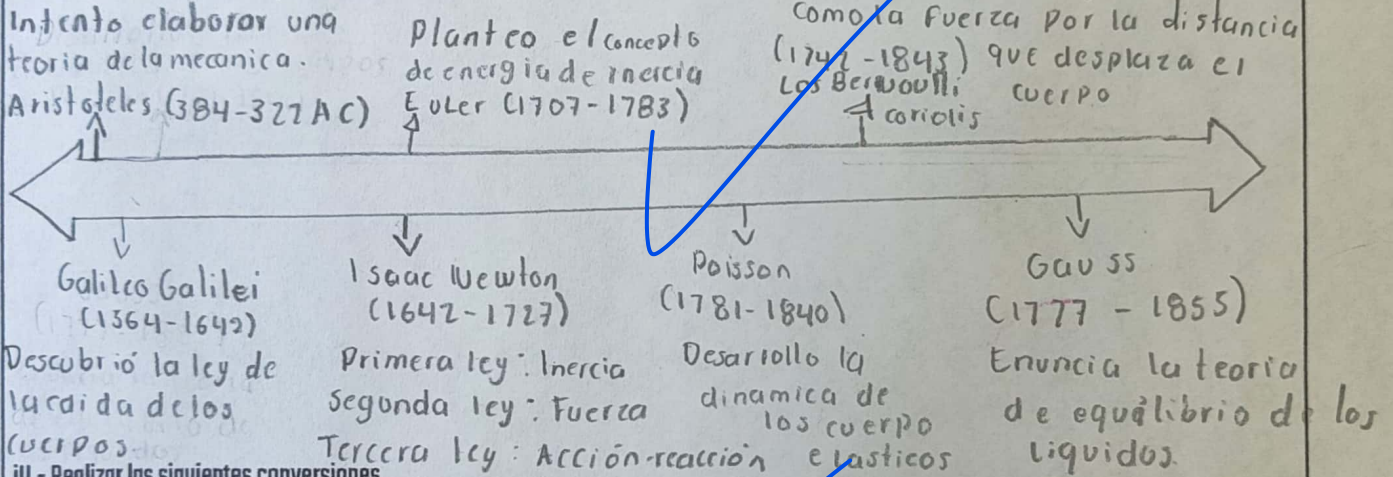 Intento elaborar una
teoria de la mecanica.
Aristoteles (384-322 AC)
Planteo el concepto
de energia de inercia
Euler (1707-1783)
Como la fuerza por la distancia
(1742-1843) que desplaza el
Los Bernoulli cuerpo
coriolis
Galileo Galilei
(1564-1642)
Descubrió la ley de
la caida de los
cuerpos.
Isaac Newton
(1642-1727)
Primera ley: Inercia
Segunda ley: Fuerza
Tercera ley: Acción-reacción
Poisson
(1781-1840)
Desarrollo la
dinamica de
los cuerpo
elasticos
Gauss
(1777-1855)
Enuncia la teoria
de equilibrio de los
liquidos.
iii - Realizar las siguientes conversiones